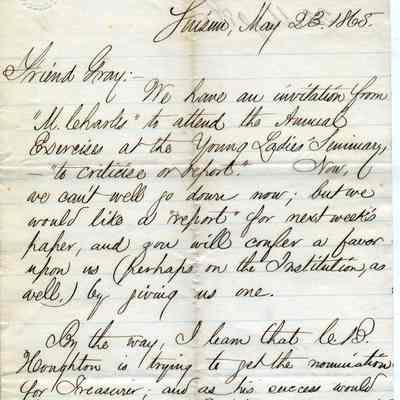 Suisun, May 23. 1868.
Friend Gray:
We have an invitation from
"M. Charls" to attend the Annual
Exercises at the Young Ladies Seminary
— "to criticise or report." Now,
we can't well go down now; but we
would like a "report" for next week's
paper, and you will confer a favor
upon us (perhaps on the Institution, as
well,) by giving us one.
By the way, I learn that C. B.
Houghton is trying to get the nomination
for Treasurer; and as his success would